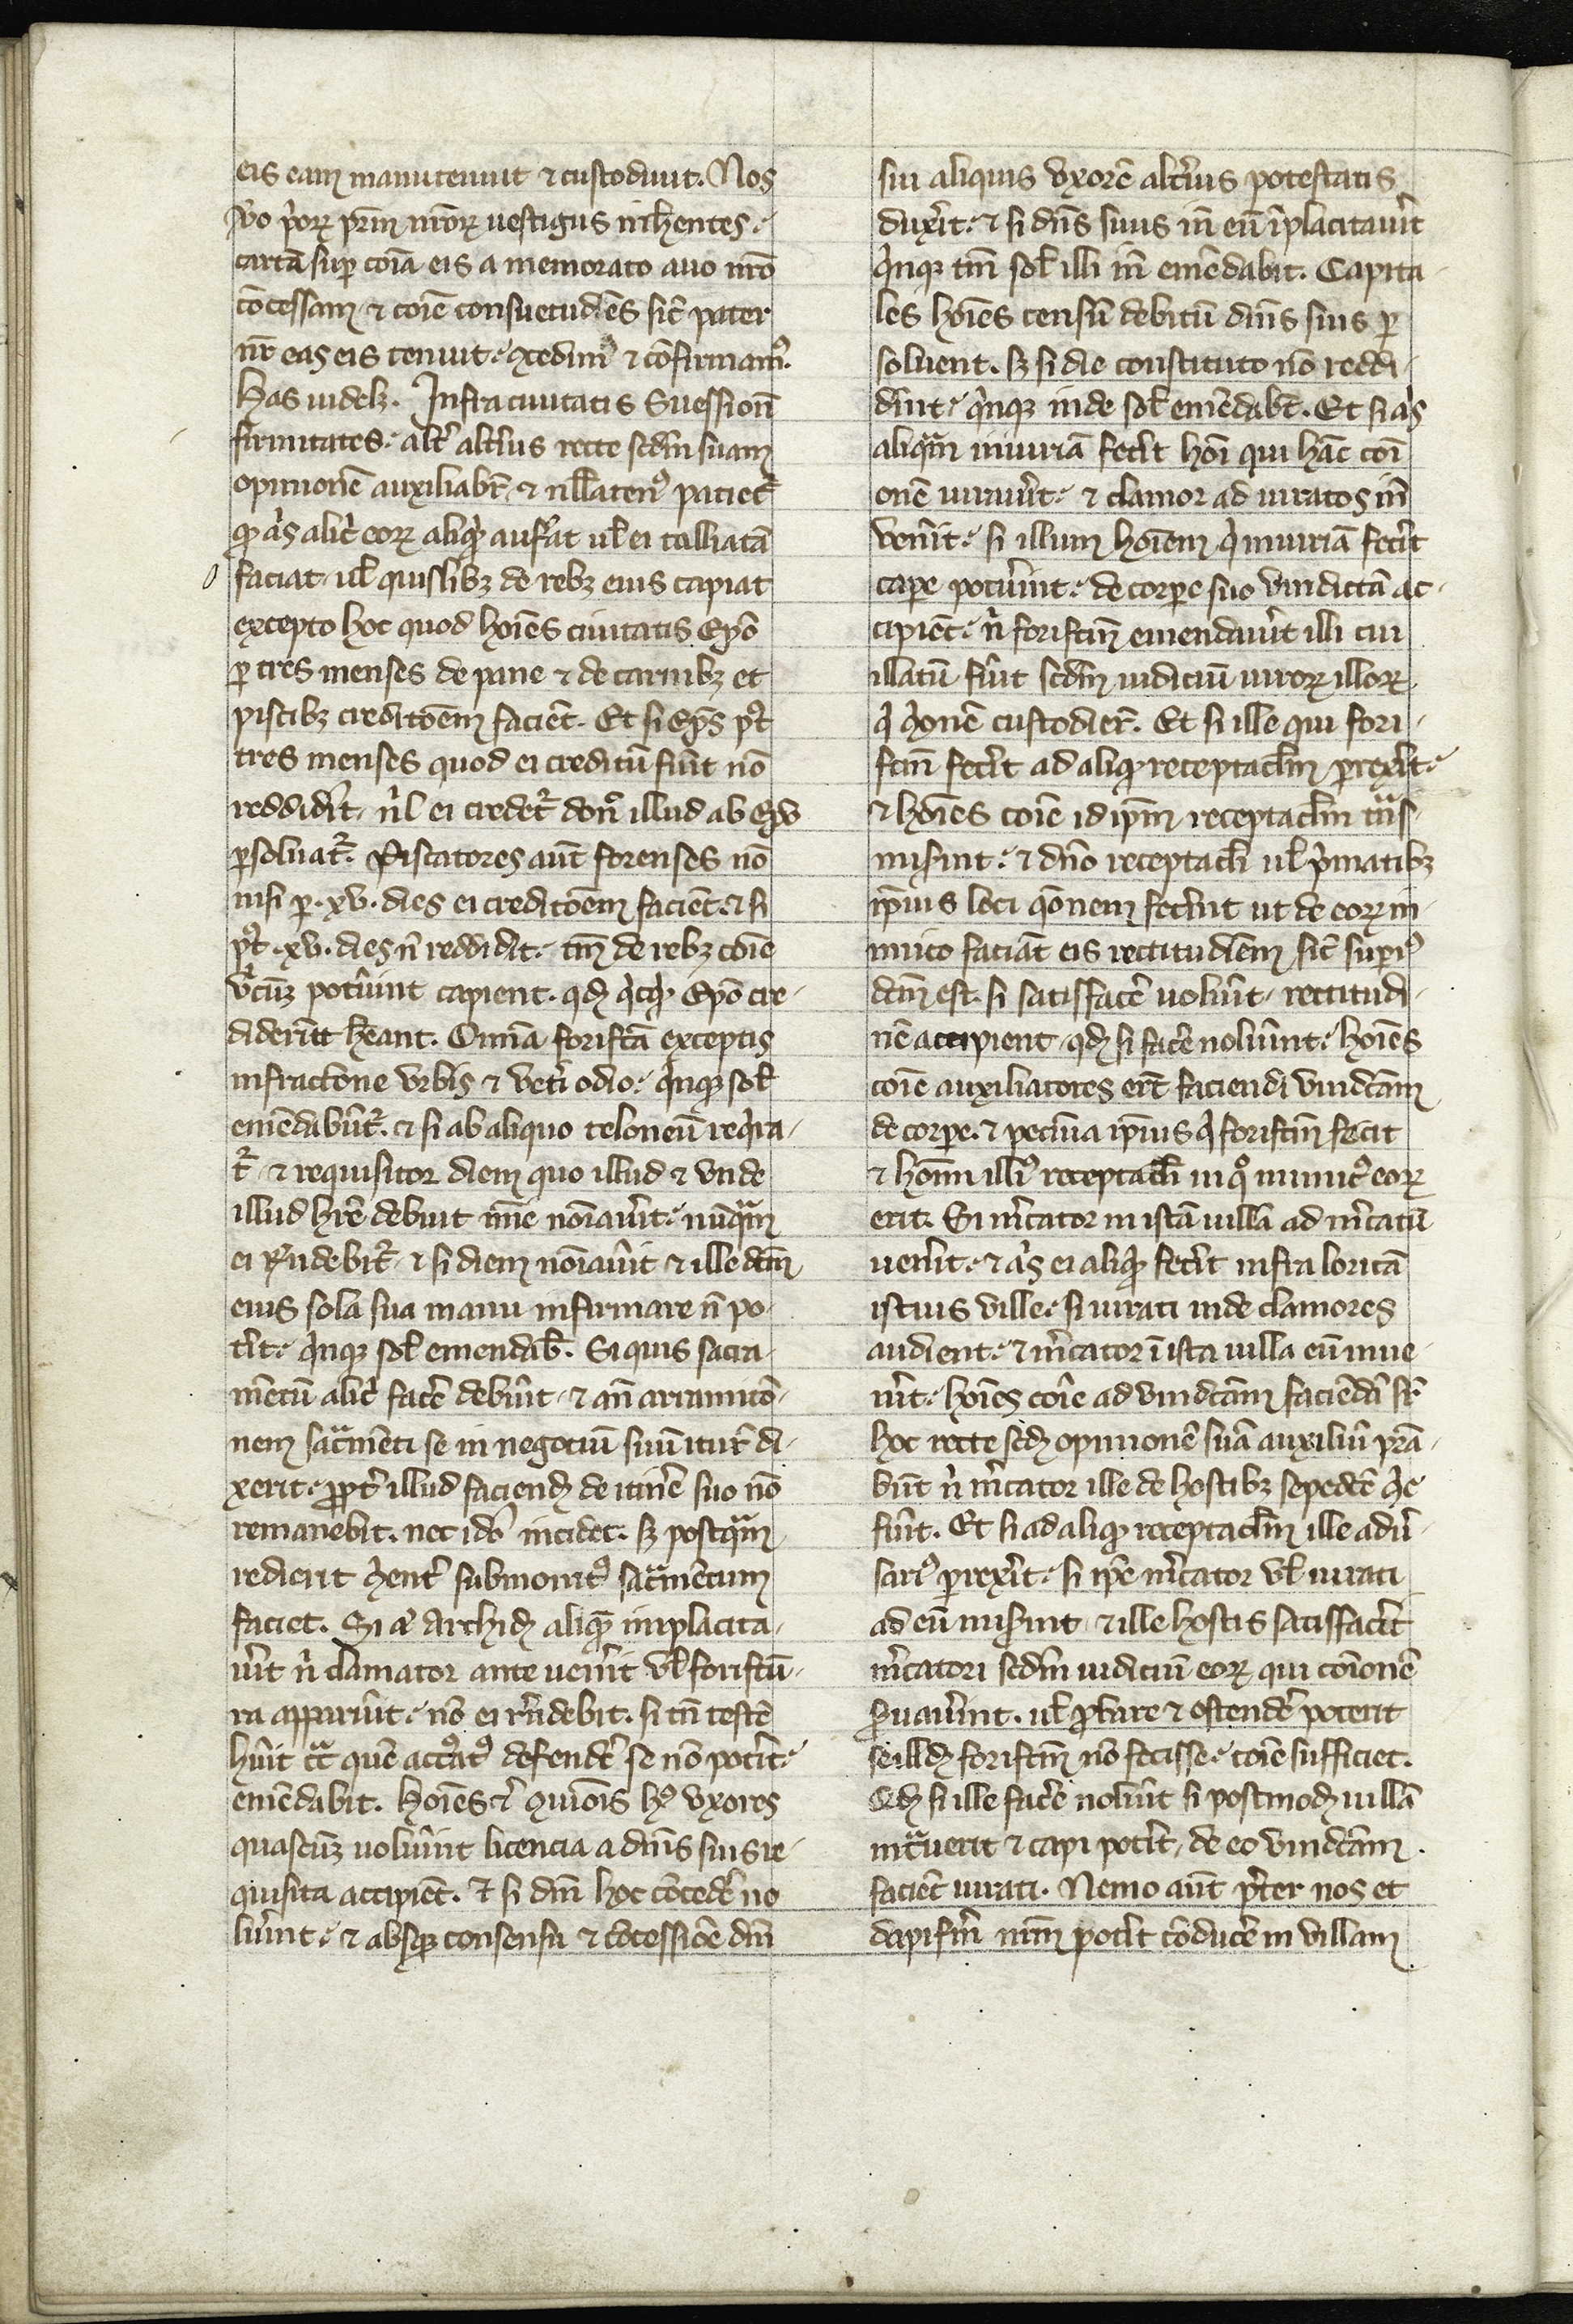 eis eam manutenuit ⁊ custodiuit. Nos
ũo p̾oꝝ pr̃m nr̃oꝝ uestigiis inh̾entes.
cartã sup̱ cõia eis a memorato auo nr̃o
cõcessam ⁊ cõie consuetudĩes sic̃ pater
nr̃ eas eis tenuit. ꝯcedim᷒ ⁊ cõfirmam᷒.
Has uidelꝫ. Infra ciuitatis Suession̄
firmitates. alt̾ alt̾ius recte scd̾m suam
opinionẽ auxiliabit᷑. ⁊ nll̃aten᷒ paciet᷑
ꝙ q̾s alic̾ eoꝝ aliq̾d auferat ul̾ ei talliatã
faciat. ul̾ quislibꝫ de rebꝫ eius capiat
excepto hoc quod hoĩes ciuitatis Ep̃o
ꝑ tres menses de pane ⁊ de carnibꝫ et
piscibꝫ creditõem facient̃. Et si ep̃s p᷒t
tres menses quod ei creditũ fu̾it nõ
reddid̾it. n̾l ei credet᷑ don̾ illud ab ep̃o
ꝑsoluat᷑. Piscatores aut̃ forenses nõ
nisi ꝑ .xv. dies ei creditõem facient̃. ⁊ si
p᷒t .xv. dies n̄ reddid̾it. tm̃ de rebꝫ cõie
ubicũꝫ potu̾int capient. qd̾ q̾cq̾d Ep̃o cre-
diderint hẽant. Omia forifc̃a exceptis
infractione urbis ⁊ ueti odio. q̾nqꝫ sol̾
emẽdabũt᷑. ⁊ si ab aliquo teloneũ req̾ra-
t᷑ ⁊ requisitor diem quo illud ⁊ unde
illud hr̃e debuit mĩe noĩau̾it. nũq̃m
ei rñdebit᷑. ⁊ si diem noĩau̾it ⁊ ille dc̃m
eius sola sua manu infirmare n̄ po-
t̾it. q̾nqꝫ sol̾ emendab̾. Si quis sacra-
mẽtũ alic̾ fac̾e debu̾it. ⁊ an̄ arramitõ-
nem sac̃menti se in negociũ suũ iturũ di-
xerit. ꝓpt̾ illud faciend̾ de itin̾e suo nõ
remanebit. nec id̾o incidet. sꝫ postq̃m
redierit ꝯuent̾ submonit᷒ sac̃mentum
faciet. Si aũ Archid̾ aliq̃m implacita-
u̾it n̾ clamator ante uen̾it ul̾ forifc̃u-
ra apparu̾it. nõ ei rñdebit. si tñ testẽ
hu̾it ct̃ quẽ accusat᷒ defend̾e se nõ pot̾it.
emẽdabit. Hoĩes ⁊ cõmuniõis h᷒ uxores
quascũꝫ uolu̾int licencia a dñis suis re-
quisita accipiẽt. ⁊ si dñi hoc cõced̾e no
lu̾int. ⁊ absqꝫ consensu ⁊ cõcessiõe dñi
sui aliquis uxorẽ alt̾ius potestatis
dux̾it. ⁊ si dñs suus in̄ eũ iplacitau̾it
q̾nqꝫ tm̃ sol̾ illi in̄ emẽdabit. Capita-
les hoĩes censũ debitũ dñis suis ꝑ
soluent. sꝫ si die constituto nõ reddi-
d̾int. q̾nqꝫ inde sol̾ emẽdabt̃. Et si q̾s
aliq̃m iniuriã fec̾it hoĩ qui hãc cõi
onẽ iurau̾it. ⁊ clamor ad iuratos in̄
uen̾it. si illum hoĩem q̾ iniuriã fec̾it
cape potu̾int. de corpe suo uindictã ac-
cipiẽt. n̾ forifc̃m emendau̾it illi cui
illatũ fu̾it scd̾m iudiciũ uiroꝝ illoꝝ
q̾ ꝯ̾onẽ custodier̃. Et si ille qui fori-
fc̃m fec̾it ad aliq̾d receptaclm̃ prex̾it.
⁊ hoĩes cõie id ip̃m receptaclm̃ tũs-
mis̾int. ⁊ dño receptacli̾ ul̾ p̾matibꝫ
ip̃ius loci q̃onem fec̾int ut de eoꝝ in-
imico faciãt eis rectitudĩem. sic̃ sup̱i᷒
dc̃m est. si satisfac̾e uolu̾it. rectitudi-
nẽ accipient. qd̾ si fac̾e nolu̾int. hoĩes
cõie auxiliatores er̃t faciendi uindc̃am
de corpe. ⁊ pecunia ip̃ius q̾ forifc̃m fecit
⁊ hoĩm illi᷒ receptacli̾ in q᷒ inimic᷒ eoꝝ
erit. Si m̾cator in istã uillã ad m̾catũ
uen̾it. ⁊ q̾s ei aliq̾d fec̾it infra loricã
istius uille. si iurati inde clamores
audient. ⁊ m̾cator ĩ ista uilla eũ inue-
n̾it. hoĩes cõie ad uindc̃am faciẽdã sr̃
hoc recte scd̾ opinionẽ suã auxiliũ prã-
bũt n̾ m̾cator ille de hostibꝫ sepedc̃e ꝯ̾e
fu̾it. Et si ad aliq̾d receptaclm̃ ille adu̾-
sari᷒ prex̾it. si ip̃e m̾cator ul̾ iurati
ad eũ mis̾int. ⁊ ille hostis satisfac̾it
m̾catori scd̾m iudiciũ eoꝝ qui cõionẽ
s̾uau̾int. ul̾ ꝓbare ⁊ ostend̾e poterit
se illd̾ forifc̃m nõ fecisse. cõie sufficiet.
Qd̾ si ille fac̾e nolu̾it si postmod̾ uillã
int̃uerit ⁊ capi pot̾it. de eo uindc̃am
faciẽt iurati. Nemo aut̃ p̾ter nos et
dapifm̃ nr̃m pot̾it cõduc̾e in uillam